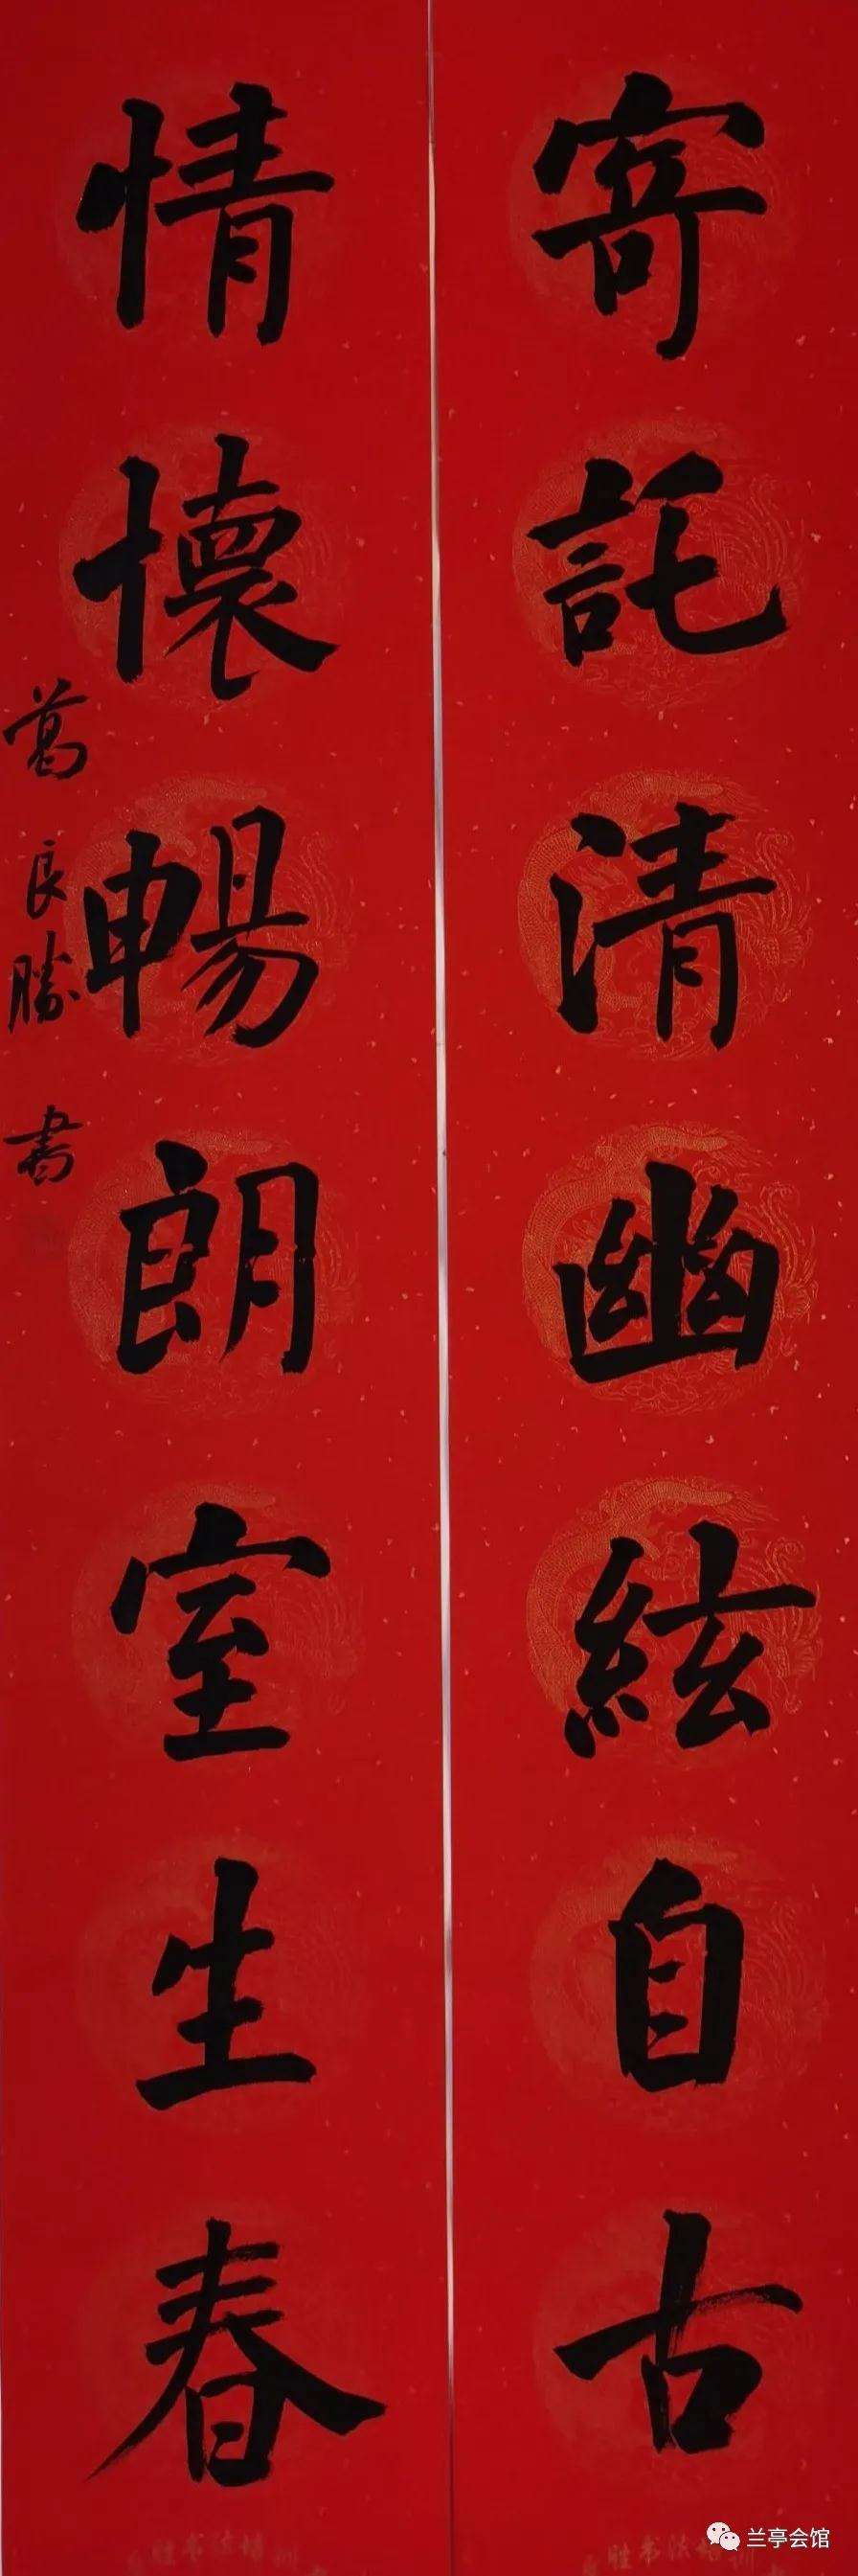 寄託清幽絃自古
情懷暢朗室生春
葛良勝書
兰亭会馆